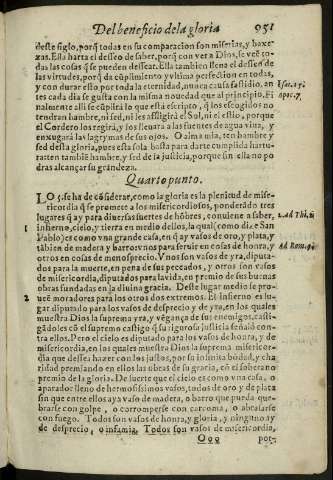 Del beneficio dela gloria 951
deste siglo, porq̃ todas en su comparacion son miserias, y baxe-
zas. Ella harta el desseo de saber, porq̃ con ver a Dios, se vee to-
das las cosas q̃ se pueden dessear. Ella tambien lleno el desseo de
las virtudes, porq̃ da cũplimiento y vltima perfection en todas,
y con durar esto por toda la eternidad, nunca causa fastidio, an
tes cada dia se gusta con la misma nouedad que al principio. Fi
nalmente alli se cũplirá lo que está escripto, q̃ los escogidos no
tendran hambre, ni sed, ni les affligirá el Sol, ni el estio, porque
el Cordero los regira, y los lleuara a las fuentes de agua viua, y
enxugará las lagrymas de sus ojos. O alma mia, ten hambre y
sed desta gloria, pues esta sola basta para darte cumplida hartu-
ra: ten tambiẽ hambre, y sed de la justicia, porque sin ella no po
dras alcançar su grãdeza.
Isai. 49.
apoc. 7.
Quarto punto.
LO 3. se ha de cõsiderar, como la gloria es la plenitud de mise-
ricordia q̃ se promete a los misericordiosos, ponderãdo tres
lugares q̃ ay para diuersas suertes de hõbres, conuiene a saber,
1 infierno, cielo, y tierra en medio dellos, la qual (como dize San
Pablo) es como vna grande casa, en q̃ ay vasos de oro, y plata, y
tãbien de madera y barro: vnos para seruir en cosas de honra, y
otros en cosas de menosprecio. Vnos son vasos de yra, diputa-
dos para la muerte, en pena de sus peccados, y otros son vasos
de misericordia, diputados para la vida, en premio de sus buenas
obras fundadas en la diuina gracia. Deste lugar medio se pro-
2 ueẽ moradores para los otros dos extremos. El infierno es lu-
gar diputado para los vasos de desprecio y de yra, en los quales
muestra Dios la suprema yra, y vengança de sus enemigos, casti-
gãdoles cõ el supremo castigo q̃ su rigurosa justicia señaló con-
tra ellos. Pero el cielo es diputado para los vasos de honra, y de
misericordia, en los quales muestra Dios la suprema misericor-
dia que dessea hazer con los justos, por su infinita bõdad, y cha
ridad premiando en ellos las obras de gracia, cõ el soberano
premio de la gloria. De suerte que el cielo es como vna casa, o
aparador lleno de hermosissimos vasos, todos de oro y de plata
sin que entre ellos aya vaso de madera, o barro que pueda que-
brarse con golpe, o corromperse con carcoma, o abrasarse
con fuego. Todos son vasos de honra, y gloria, y ninguno ay
de desprecio, o infamia. Todos son vasos de misericordia,
2. Ad Thi. 2
Ad Rom. 9.
Ooo por-